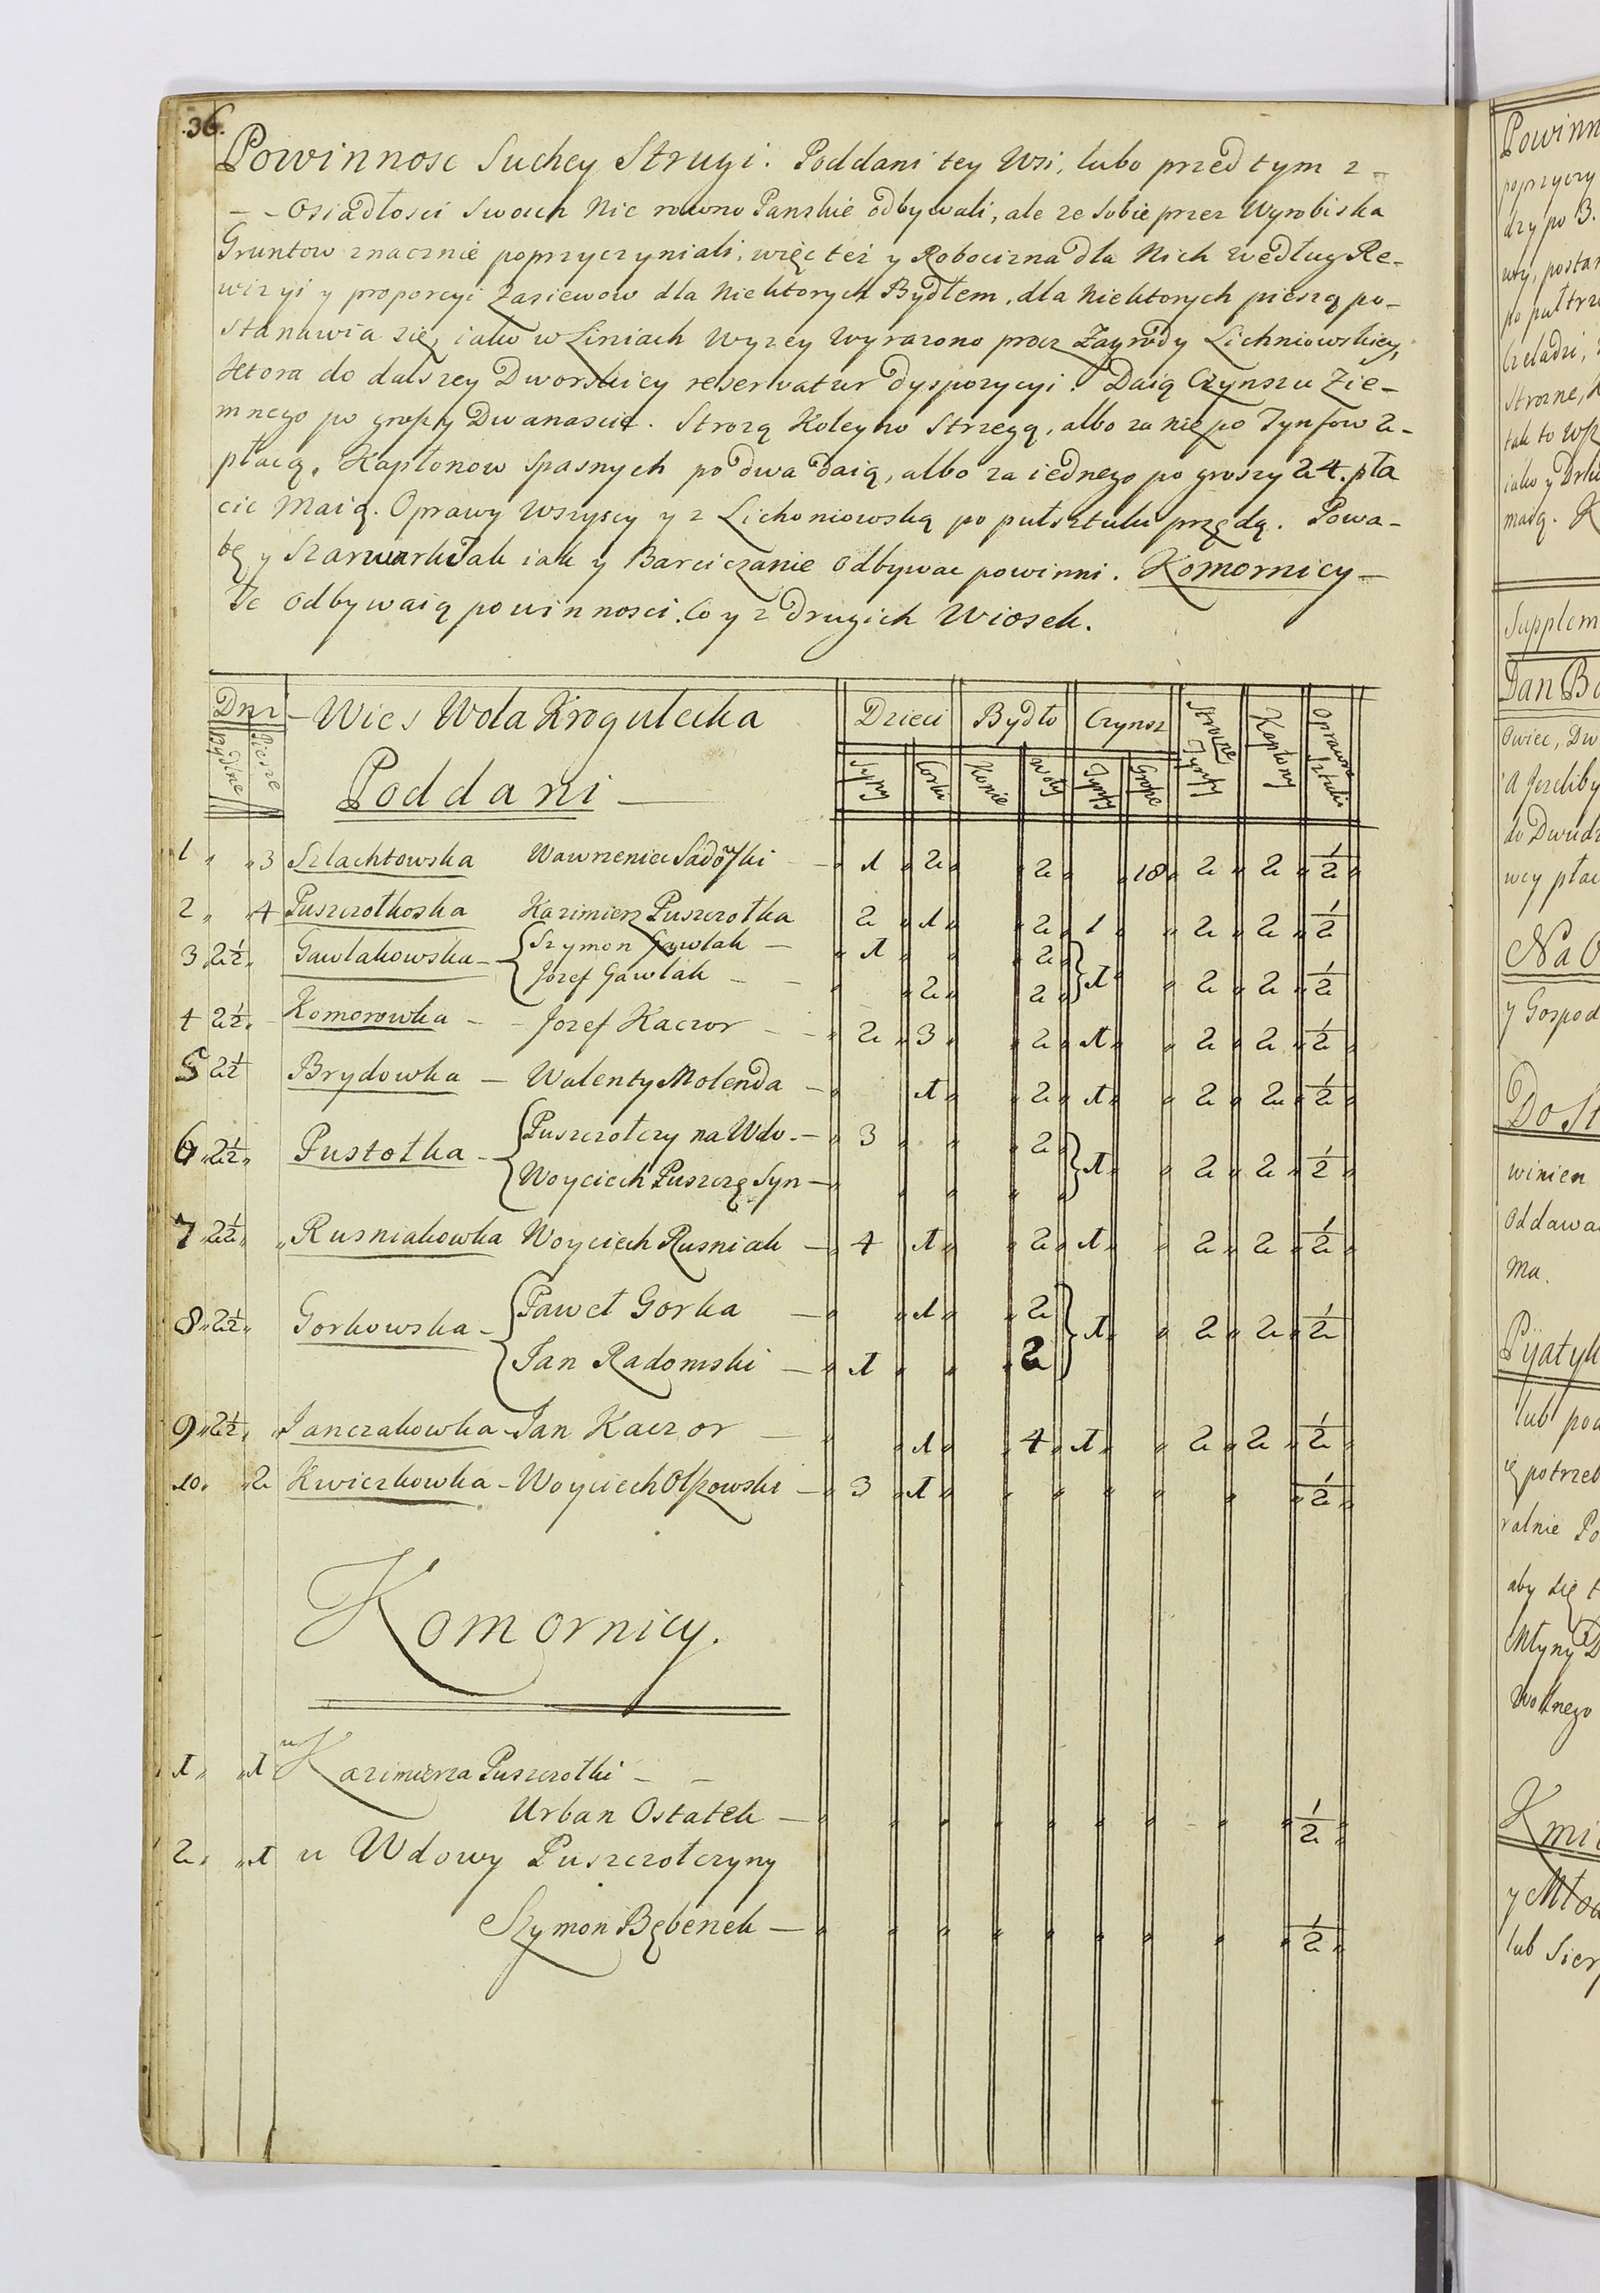 36.
Powinnosc Suchey Strugi. Poddani tey Wsi, lubo przedtym z
Osiadłosci Swoich Nie rowno Panskie odbywali, ale ze sobie przez Wyrobiska
Gruntow znacznie poprzyczyniali, więc też y Robocizna dla Nich według Re-
wizyi y proporcyi Zasiewow dla Niektorych Bydłem, dla Niektorych pieszą po-
stanawia się, iako w Liniach Wyzey Wyrazono procz Zagrody Lichniowskiey,
Ktora do dalszey Dworskiey reservatur dyspozycyi. Daią Czynszu Zie-
mnego po groszy Dwanascie. Strozą Koleyno Strzegą, albo za nię po Tynfow 2-
płacą. Kapłonow Spasnych po dwa daią, albo za iednego po groszy 24. pła
cic Maią. Oprawy Wszyscy y z Lichoniowską po pułsztuku przędą. Powa-
bę y Szarwarki Tak iak y Barciczanie odbywac powinni. Komornicy-
Te odbywaią powinnosci. Co y z drugich Wiosek.
Dni - Wies Wola Krogulecka Dzieci Bydło Czynsz Strożne Tynfy Kapłony Oprawne Sztuki
Bydlne Piesze Poddani Syny Corki Konie Woły Tynfy Grosze
1 3 Szlachtowska Wawrzeniec Sadowski 1 2 2 18 2 2 1/2
2 4 Puszczotkoska Kazimierz Puszczotka 2 1 2 1 2 2 1/2
3 2 1/2 Gawlakowska { Szymon Gawlak 1 2
Jozef Gawlak 2 2 } 1 2 2 1/2
4 2 1/2 Komorowka Jozef Kaczor 2 3 2 1 2 2 1/2
5 2 1/2 Brydowka Walenty Molenda 1 2 1 2 2 1/2
6 2 1/2 Pustotka { Puszczotczy na Wdo. 3 2
Woyciech Puszczę Syn } 1 2 2 1/2
7 2 1/2 Rusniakowka Woyciech Rusniak 4 1 2 1 2 2 1/2
8 2 1/2 Gorkowska { Paweł Gorka 1 2
Jan Radomski 1 2 } 1 2 2 1/2
9 2 1/2 Janczakowka Jan Kaczor 1 4 1 2 2 1/2
10 2 Kwiczkowka Woyciech Olszowski 3 1 1/2
Komornicy.
1 1 u Kazimierza Puszczotki
Urban Ostatek 1/2
2 1 u Wdowy Puszczotczyny
Szymon Bębenek 1/2
Powinn
poprzyczy
dzy po 3.
postan
po pułtrze
Czeladzi,
Strozne, K
tak to Wsz
iako y Drk
maią. K
Supplem
Dan Ba
Owiec, Dw
A Jezeliby
do Dwudz
wcy płac
Na O
y Gospod
Do St
winien
Oddawac
Ma.
Pijatyk
lub pod
potrzeb
ralnie Po
aby się t
Młyny D
Wolnego
Kmie
y Młod
lub Sierp